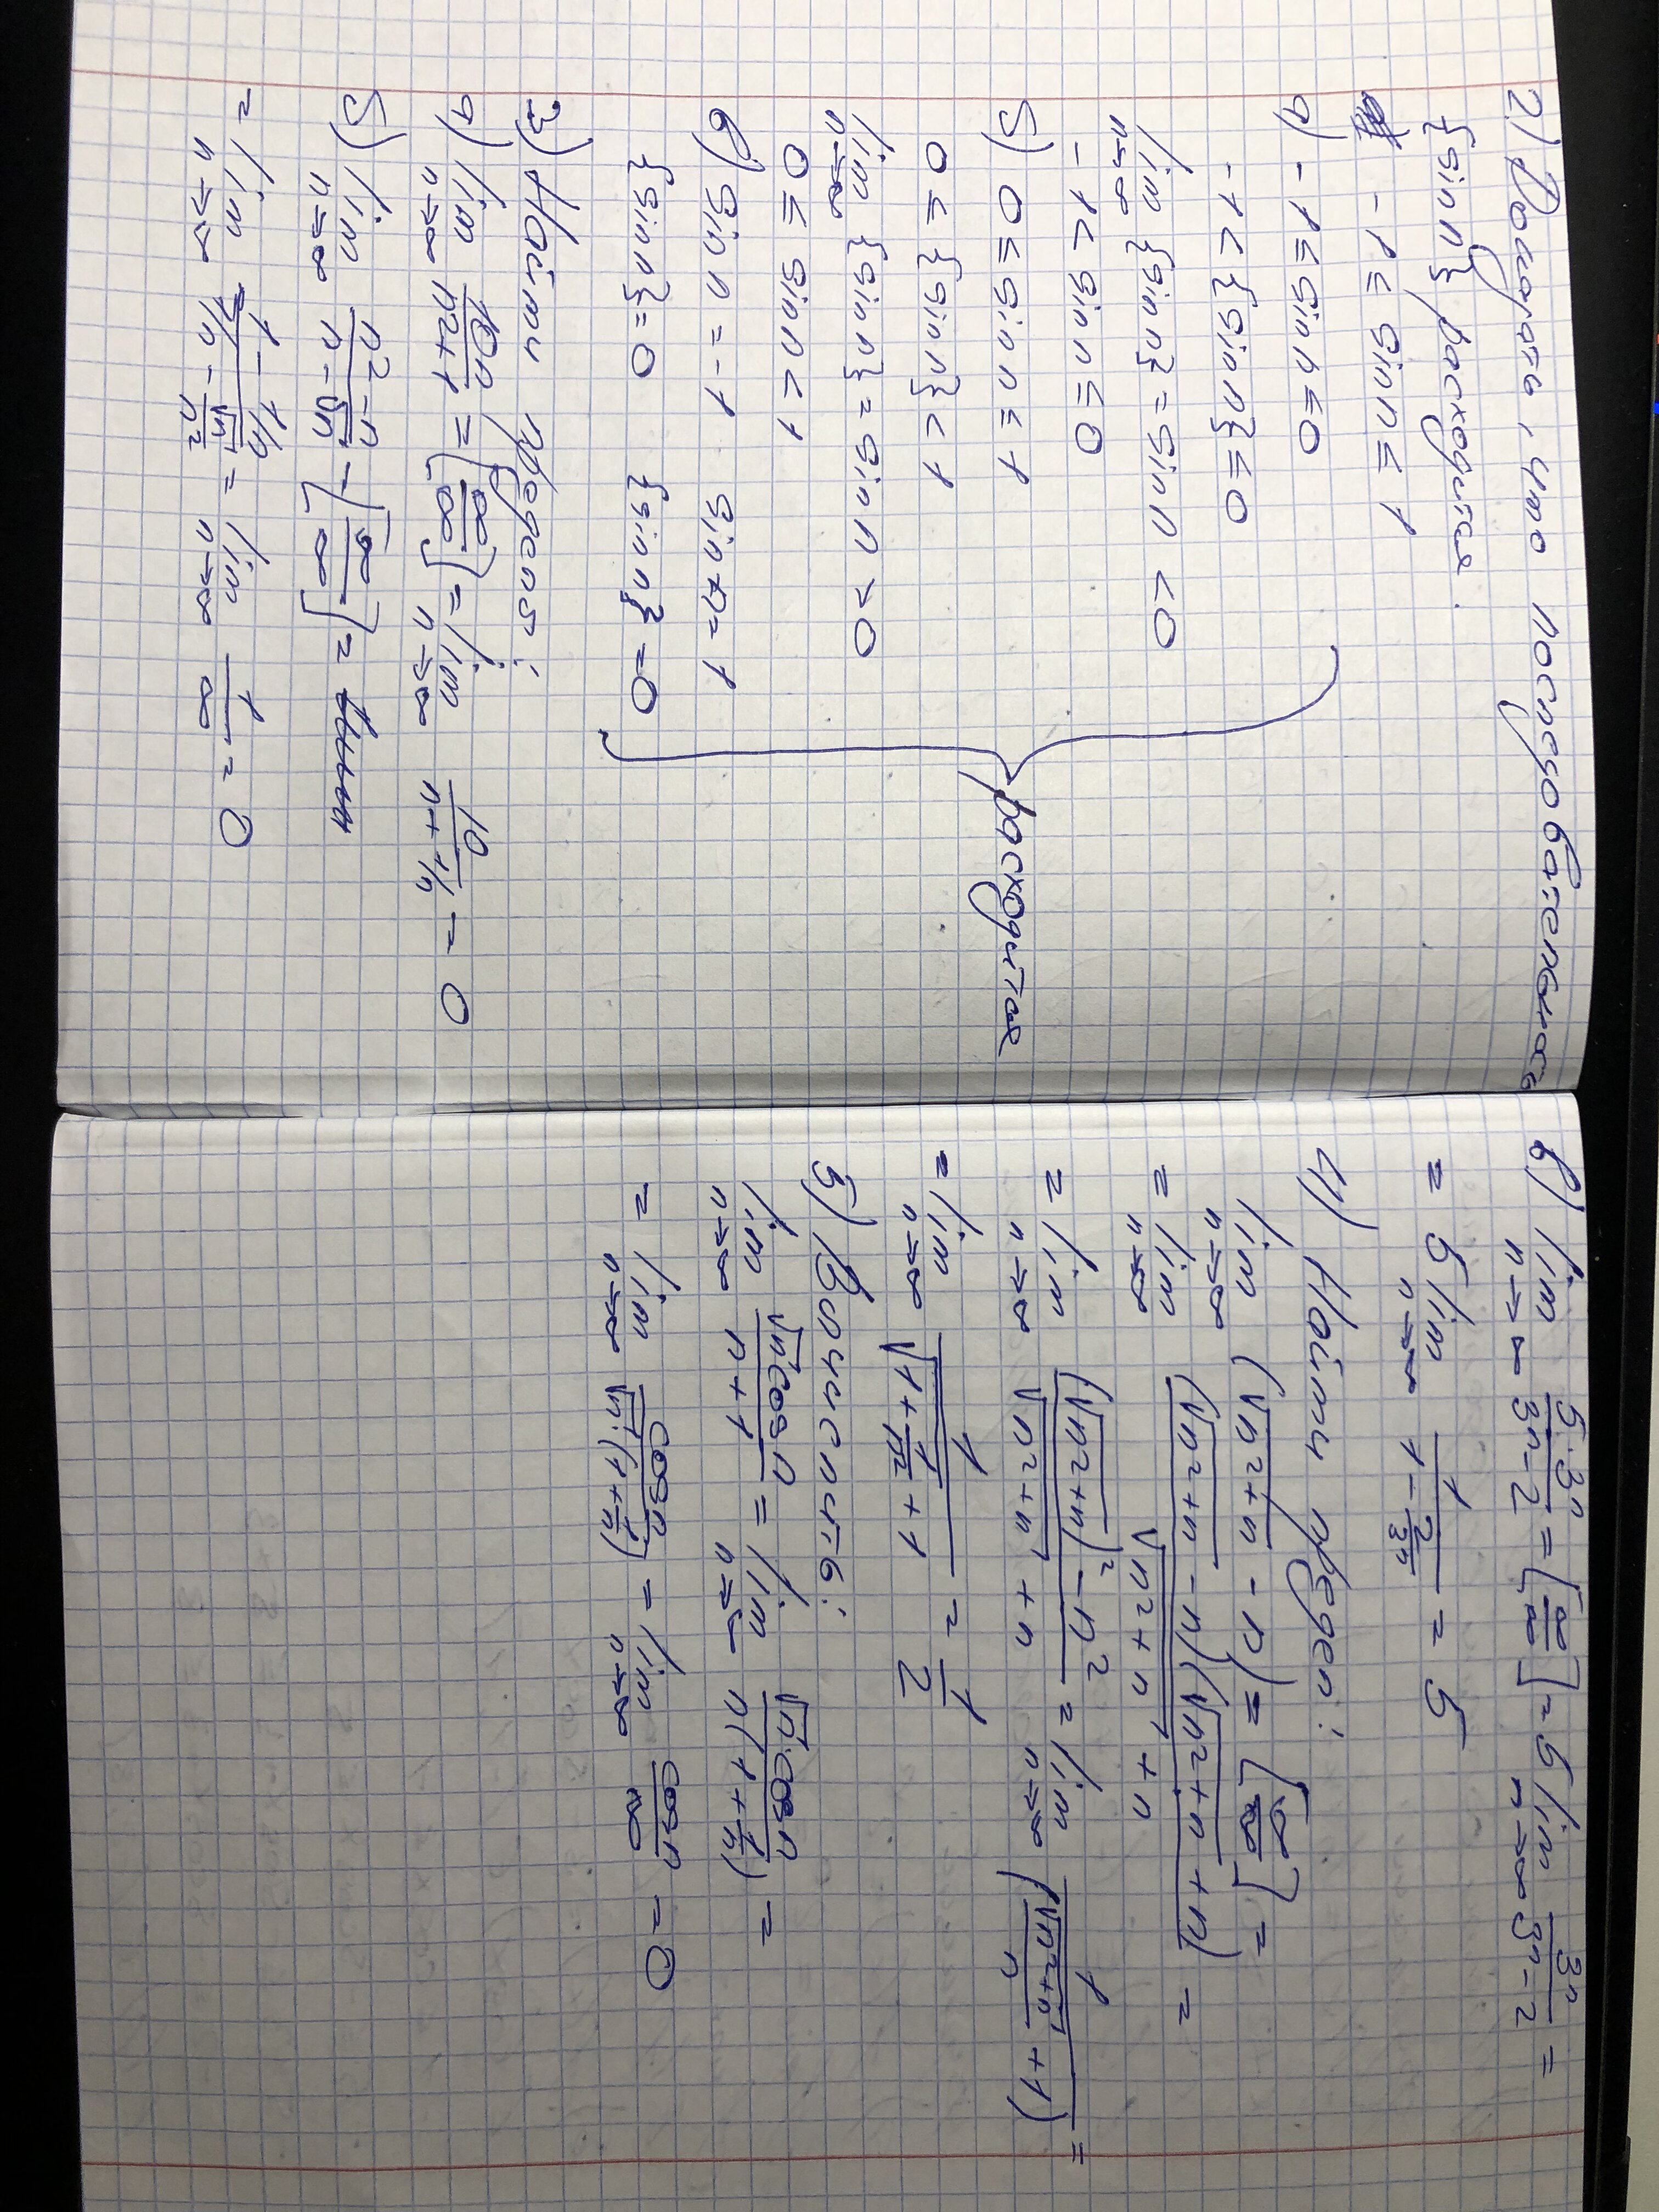 2) Доказать, что последовательность
{sin n} расходится.
-1 ≤ sin n ≤ 1
а) -1 ≤ sin n ≤ 0
-1 < {sin n} ≤ 0
lim n→∞ {sin n} = sin n < 0
-1 < sin n ≤ 0
б) 0 ≤ sin n ≤ 1
0 ≤ {sin n} < 1
lim n→∞ {sin n} = sin n > 0
0 ≤ sin n < 1
в) sin n = -1 sin n = 1
{sin n} = 0 {sin n} = 0
расходится
3) Найти предел:
а) lim n→∞ 10n/(n²+1) = [∞/∞] = lim n→∞ 10/(n+1/n) = 0
б) lim n→∞ (n²-n)/(n-√n) = [∞/∞] =
= lim n→∞ (1-1/n)/(1/n-√n/n²) = lim n→∞ 1/∞ = 0
в) lim n→∞ 5·3ⁿ/(3ⁿ-2) = [∞/∞] = 5 lim n→∞ 3ⁿ/(3ⁿ-2) =
= 5 lim n→∞ 1/(1-2/3ⁿ) = 5
4) Найти предел:
lim n→∞ (√(n²+n) - n) = [∞/∞] =
= lim n→∞ (√(n²+n) - n)(√(n²+n) + n)/(√(n²+n) + n) =
= lim n→∞ ((√(n²+n))² - n²)/(√(n²+n) + n) = lim n→∞ 1/(√(n²+n)/n + 1) =
= lim n→∞ 1/(√(1+1/n) + 1) = 1/2
5) Вычислить:
lim n→∞ √n cos n/(n+1) = lim n→∞ √n cos n/(n(1+1/n)) =
= lim n→∞ cos n/(√n·(1+1/n)) = lim n→∞ cos n/∞ = 0